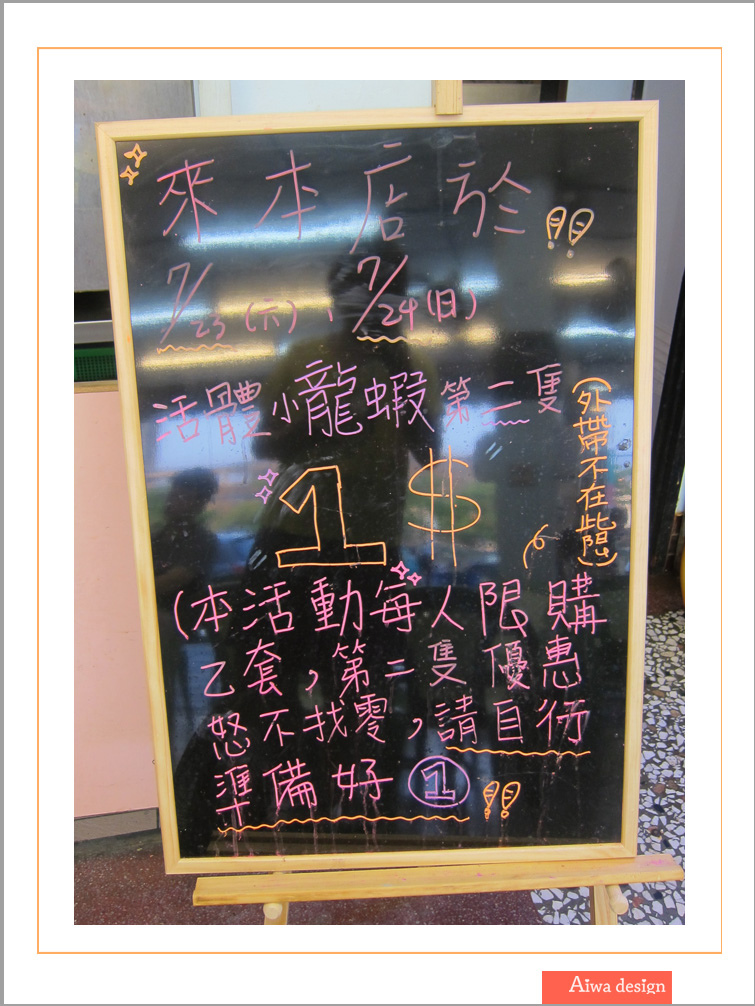 來本店於!!
7/23(六)、7/24(日)
活體小龍蝦第二隻
(外帶不在此限)
1$
(本活動每人限購
乙套,第二隻優惠
怒不找零,請自行
準備好①!!
Aiwa design